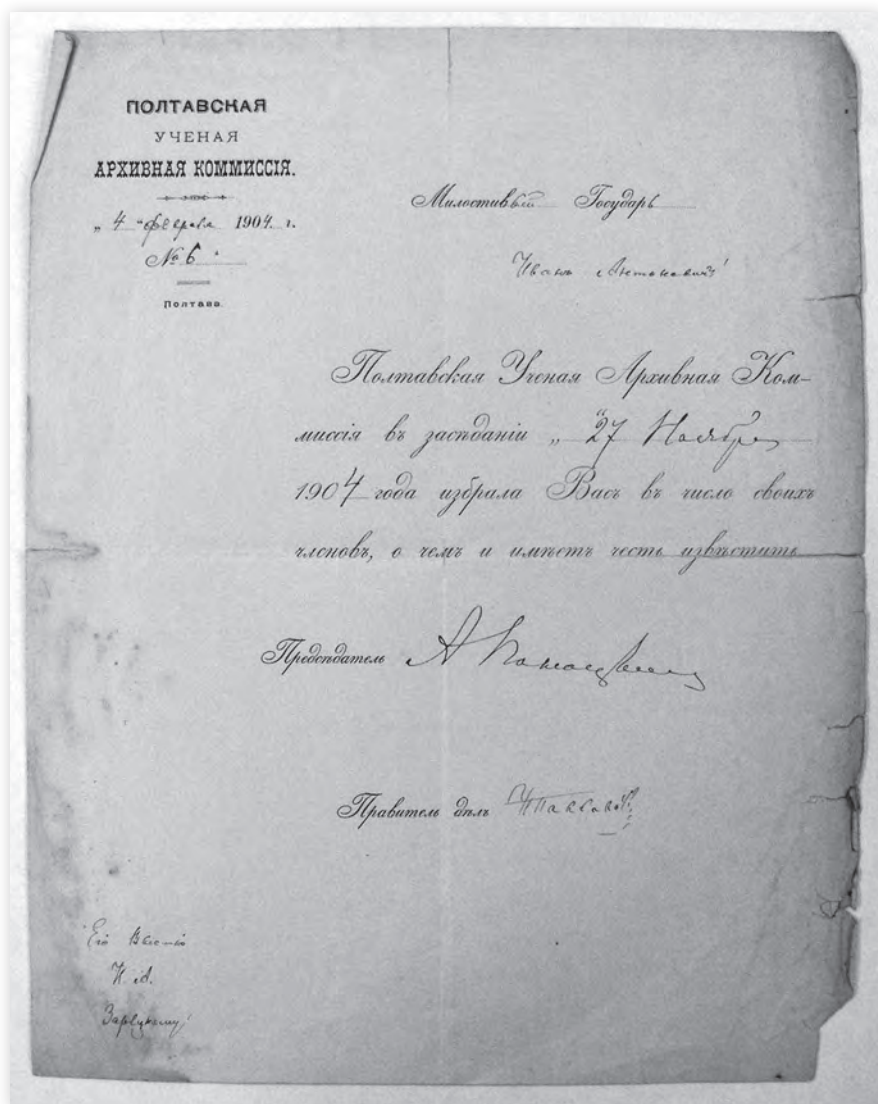 ПОЛТАВСКАЯ
УЧЕНАЯ
АРХИВНАЯ КОММИССІЯ.
„ 4 " февраля 1904 г.
№ 6
Полтава.
Милостивый Государь
Иванъ Антоновичъ!
Полтавская Ученая Архивная Ком-
миссія въ засѣданіи „ 27 Ноября
1904 года избрала Васъ въ число своихъ
членовъ, о чемъ и имѣетъ честь извѣстить
Предсѣдатель А
Правитель дѣлъ
Его
И. А.
Зарѣцкому